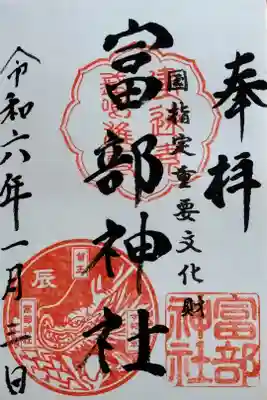 奉拝
国指定重要文化財
富部神社
令和六年一月三日
辰
富部
神社